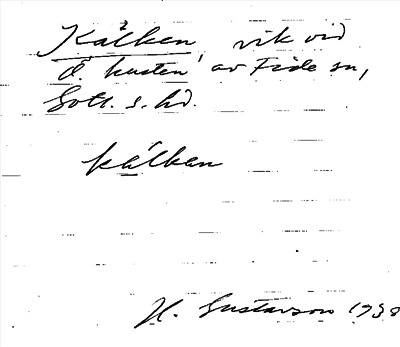 Kålken, vik vid
ö. kusten av Fide sn,
Gotl. s. hd.
kålken
H. Gustavson 1938